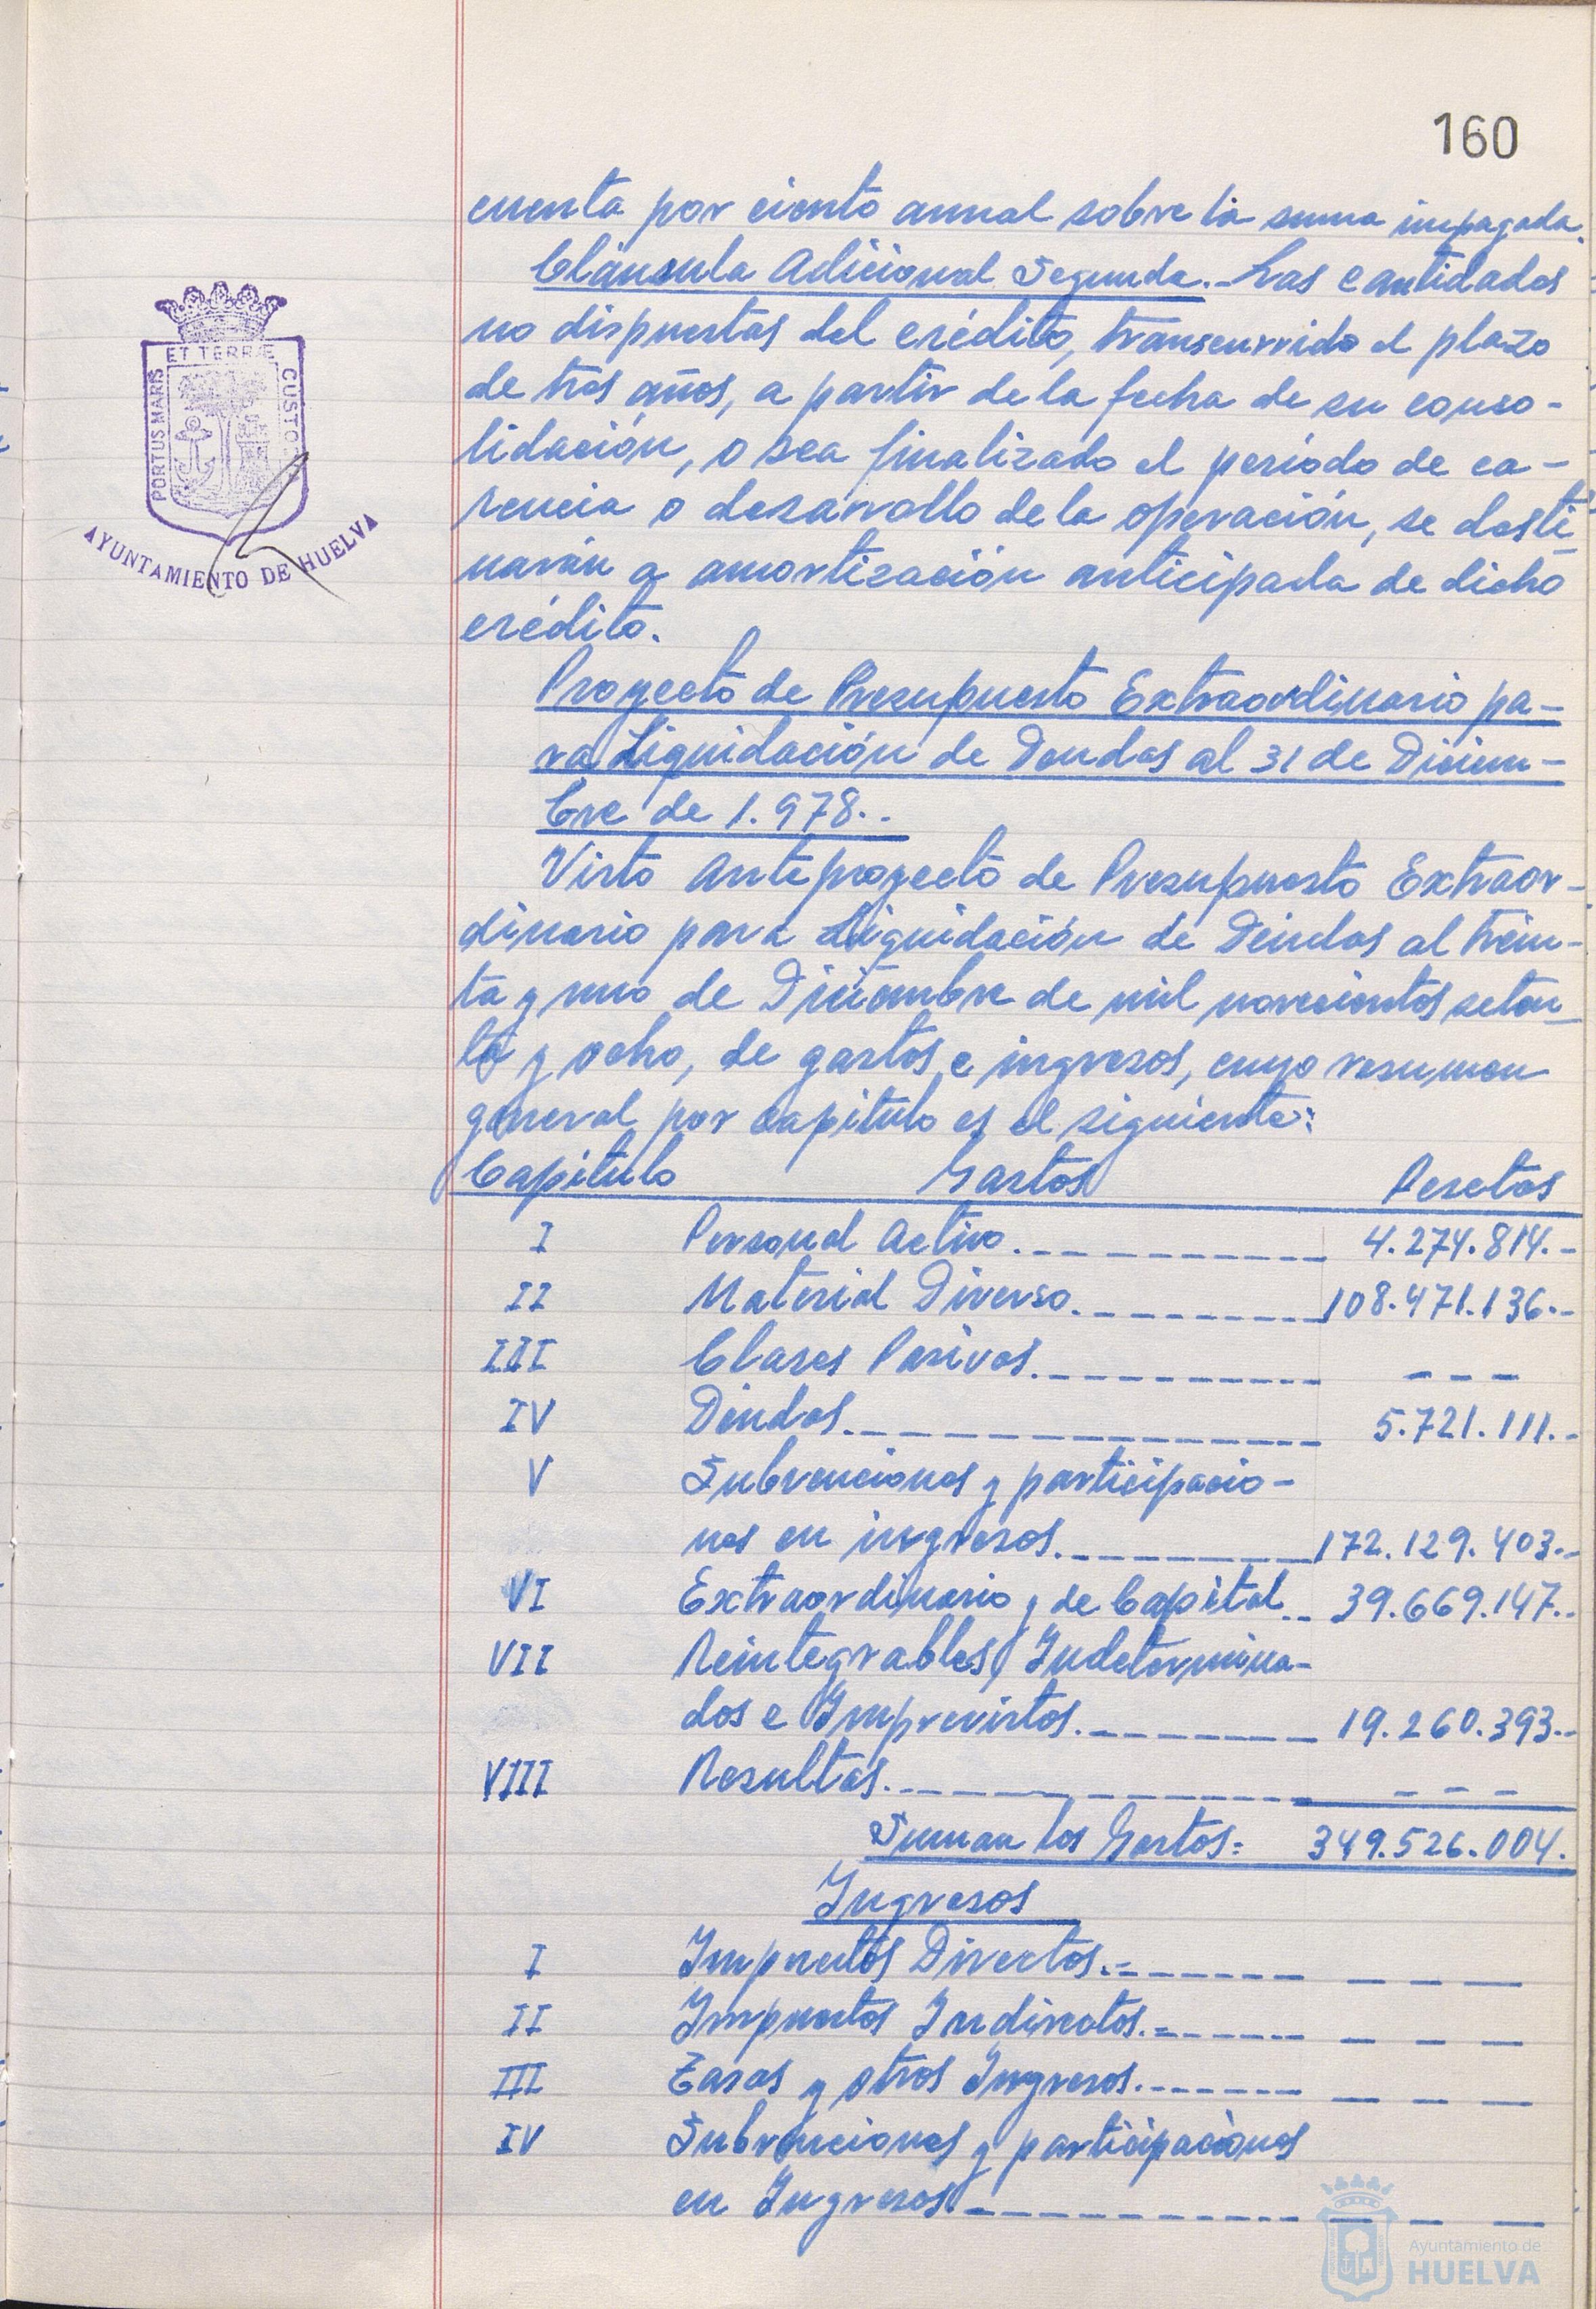 160
cuenta por ciento anual sobre la suma impagada.
Cláusula Adicional Segunda.- Las cantidades
no dispuestas del crédito, transcurrido el plazo
de tres años, a partir de la fecha de su conso-
lidación, o sea finalizado el período de ca-
rencia o desarrollo de la operación, se desti-
narán a amortización anticipada de dicho
crédito.
Proyecto de Presupuesto Extraordinario pa-
ra Liquidación de Deudas al 31 de Diciem-
bre de 1.978.-
Visto Anteproyecto de Presupuesto Extraor-
dinario para Liquidación de Deudas al trein-
ta y uno de Diciembre de mil novecientos seten-
ta y ocho, de gastos e ingresos, cuyo resumen
general por capítulo es el siguiente:
Capítulo Gastos Pesetas
I Personal Activo.---------- 4.274.814.-
II Material Diverso.--------- 108.471.136.-
III Clases Pasivas.---------- ---
IV Deudas.---------------- 5.721.111.-
V Subvenciones y participacio-
nes en ingresos.--------- 172.129.403.-
VI Extraordinario y de Capital.-- 39.669.147.-
VII Reintegrables, Indetermina-
dos e Imprevistos.-------- 19.260.393.-
VIII Resultas.-------------- ---
Suman los Gastos= 349.526.004.
Ingresos
I Impuestos Directos.=------ ---
II Impuestos Indirectos.=------ ---
III Tasas y otros Ingresos.------- ---
IV Subvenciones y participaciones
en Ingresos.------------ ---
PORTUS MARIS ET TERRÆ CUSTO
AYUNTAMIENTO DE HUELVA
Ayuntamiento de
HUELVA